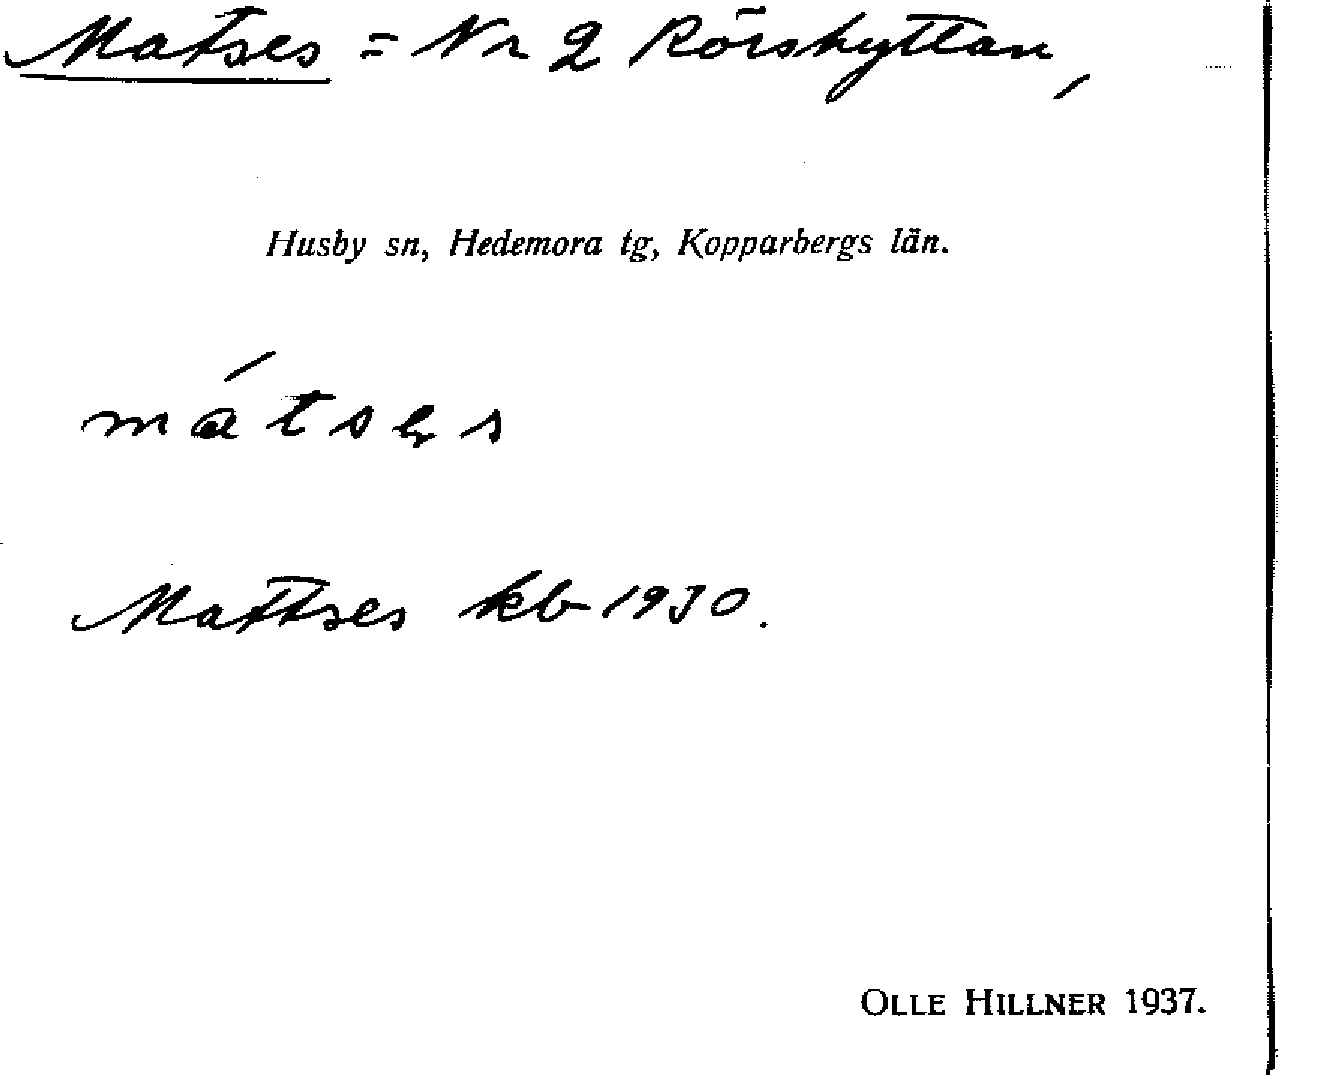 Matses = Nr 2 Rörshyttan,
Husby sn, Hedemora tg, Kopparbergs län.
mátses
Mattses kb 1930.
OLLE HILLNER 1937.